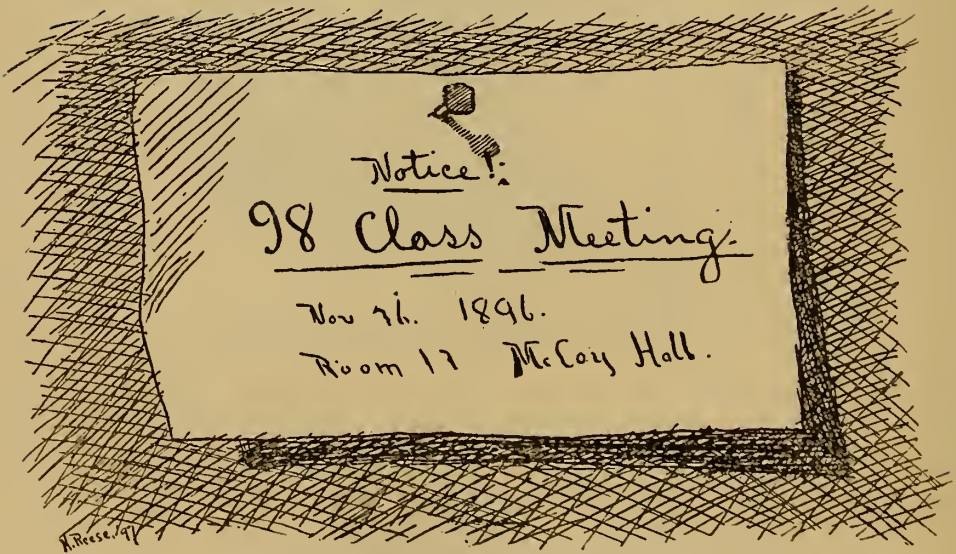 Notice!:
98 Class Meeting.
Nov 1896.
Room McCoy Hall.
A. Reese. '97